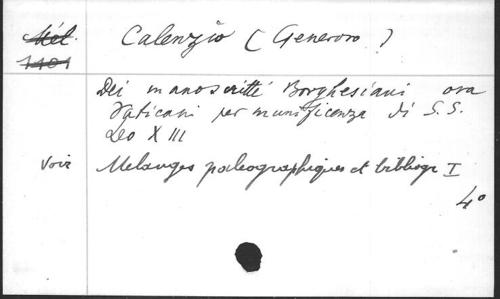 Mél. Calenzio (Generoso)
1401
Dei manoscritti Borghesiani ora
Vaticani per munificenza di S. S.
Leo XIII
Voir Melanges paleographiques et bibliogr I
4°